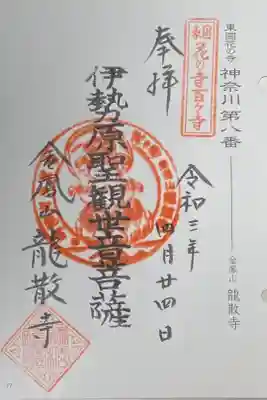 東国花の寺
神奈川第八番
金鳳山 龍散寺
東国
花の寺百ヶ寺
奉拝
令和三年
四月廿四日
伊勢原聖観世音菩薩
金鳳山
龍散寺